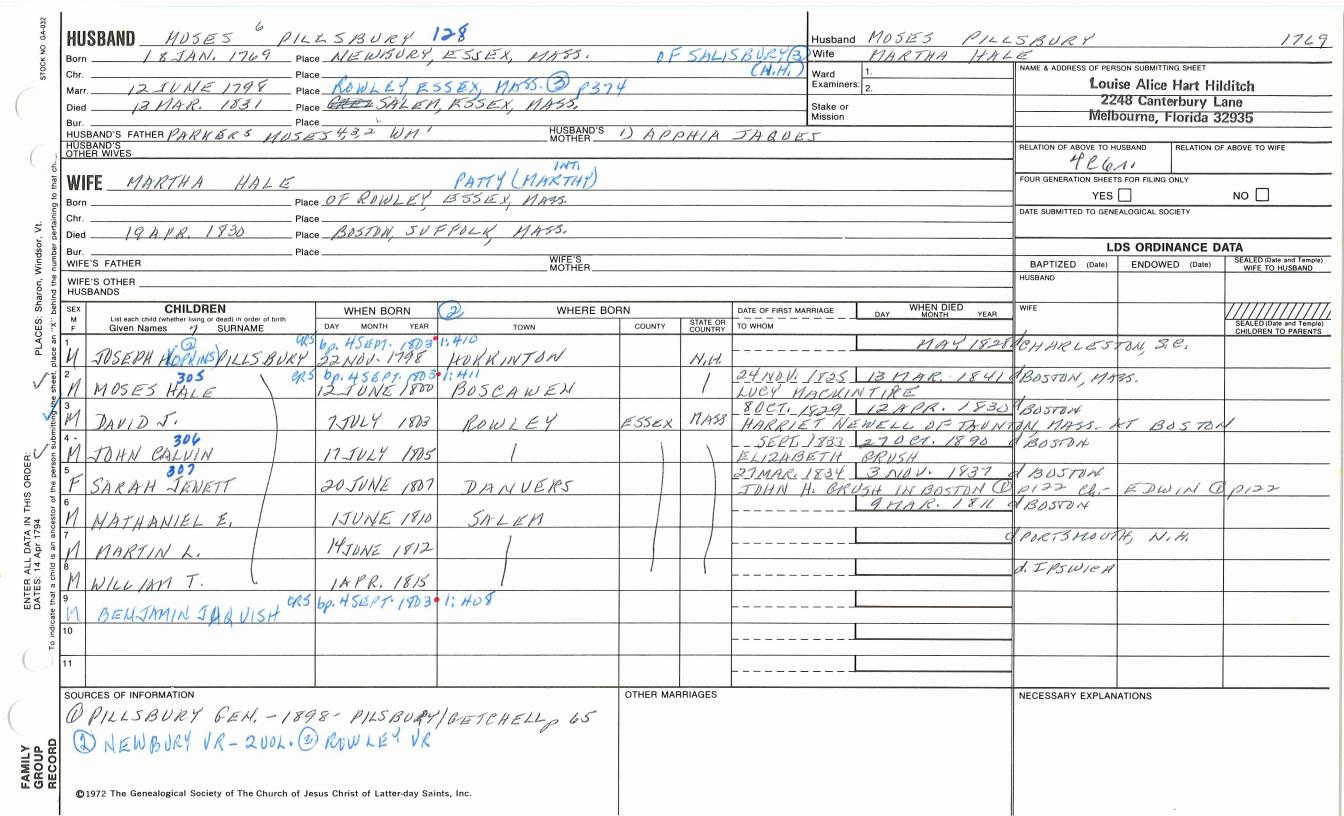 STOCK NO. GA-032
HUSBAND MOSES 6 PILLSBURY 128
Born 18 JAN. 1769 Place NEWBURY, ESSEX, MASS. OF SALISBURY (3)
Chr. Place (N.H.)
Marr. 12 JUNE 1798 Place ROWLEY, ESSEX, MASS. (3) p374
Died 13 MAR. 1831 Place SALEM, ESSEX, MASS.
Bur. Place
HUSBAND'S FATHER PARKER5 MOSES4,3,2 WM1 HUSBAND'S MOTHER 1) APPHIA JAQUES
HUSBAND'S OTHER WIVES
Husband MOSES PILLSBURY 1769
Wife MARTHA HALE
Ward Examiners: 1.
2.
Stake or Mission
NAME & ADDRESS OF PERSON SUBMITTING SHEET
Louise Alice Hart Hilditch
2248 Canterbury Lane
Melbourne, Florida 32935
RELATION OF ABOVE TO HUSBAND RELATION OF ABOVE TO WIFE
FOUR GENERATION SHEETS FOR FILING ONLY
YES NO
DATE SUBMITTED TO GENEALOGICAL SOCIETY
INT.
WIFE MARTHA HALE PATTY (MARTHY)
Born Place OF ROWLEY, ESSEX, MASS.
Chr. Place
Died 19 APR. 1830 Place BOSTON, SUFFOLK, MASS.
Bur. Place
WIFE'S FATHER WIFE'S MOTHER
WIFE'S OTHER HUSBANDS
LDS ORDINANCE DATA
BAPTIZED (Date) ENDOWED (Date) SEALED (Date and Temple) WIFE TO HUSBAND
HUSBAND
WIFE
SEALED (Date and Temple) CHILDREN TO PARENTS
SEX M F CHILDREN WHEN BORN (2) WHERE BORN DATE OF FIRST MARRIAGE WHEN DIED
List each child (whether living or dead) in order of birth
Given Names 7) SURNAME DAY MONTH YEAR TOWN COUNTY STATE OR COUNTRY TO WHOM DAY MONTH YEAR
1 CRS bp. 4 SEPT. 1803 1:410
M JOSEPH HOPKINS) PILLSBURY 22 NOV. 1798 HOPKINTON N.H. MAY 1828 d CHARLESTON, S.C.
2 305 CRS bp. 4 SEPT. 1803 1:411
M MOSES HALE 12 JUNE 1800 BOSCAWEN 24 NOV. 1825 13 MAR. 1841 d BOSTON, MASS.
LUCY MACKINTIRE
3 M DAVID J. 7 JULY 1803 ROWLEY ESSEX MASS 8 OCT. 1829 12 APR. 1830 d BOSTON
HARRIET NEWELL OF TAUNTON, MASS. AT BOSTON
4 306
M JOHN CALVIN 17 JULY 1805 SEPT. 1833 27 OCT. 1890 d BOSTON
ELIZABETH BRUSH
5 307
F SARAH JENETT 20 JUNE 1807 DANVERS 27 MAR. 1834 3 NOV. 1837 d BOSTON
JOHN H. BRUSH IN BOSTON (1) p122 Ch.- EDWIN (1) p122
6 M NATHANIEL E. 1 JUNE 1810 SALEM 9 MAR. 1811 d BOSTON
7 M MARTIN L. 14 JUNE 1812 d PORTSMOUTH, N.H.
8 M WILLIAM T. 1 APR. 1815 d. IPSWICH
9 M BENJAMIN JAQUISH CRS bp. 4 SEPT. 1803 1:408
10
11
SOURCES OF INFORMATION OTHER MARRIAGES NECESSARY EXPLANATIONS
(1) PILLSBURY GEN. -1898- PILSBURY/GETCHELL p 65
(2) NEWBURY VR - 2 VOL. (3) ROWLEY VR
©1972 The Genealogical Society of The Church of Jesus Christ of Latter-day Saints, Inc.
FAMILY GROUP RECORD
ENTER ALL DATA IN THIS ORDER:
DATES: 14 Apr 1794
PLACES: Sharon, Windsor, Vt.